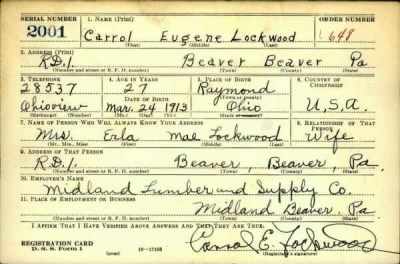 SERIAL NUMBER 1. NAME (Print) ORDER NUMBER
2001 Carrol Eugene Lockwood 1648
(First) (Middle) (Last)
2. ADDRESS (Print)
R.D.1. Beaver Beaver Pa
(Number and street or R. F. D. number) (Town) (County) (State)
3. TELEPHONE 4. AGE IN YEARS 5. PLACE OF BIRTH 6. COUNTRY OF CITIZENSHIP
28537 27 Raymond
DATE OF BIRTH (Town or county)
Ohioview Mar. 24 1913 Ohio U.S.A.
(Exchange) (Number) (Mo.) (Day) (Yr.) (State or country)
7. NAME OF PERSON WHO WILL ALWAYS KNOW YOUR ADDRESS 8. RELATIONSHIP OF THAT PERSON
Mrs. Eala Mae Lockwood Wife
(Mr., Mrs., Miss) (First) (Middle) (Last)
9. ADDRESS OF THAT PERSON
R.D.1. Beaver, Beaver, Pa.
(Number and street or R. F. D. number) (Town) (County) (State)
10. EMPLOYER'S NAME
Midland Lumber and Supply Co.
11. PLACE OF EMPLOYMENT OR BUSINESS
Midland Beaver, Pa.
(Number and street or R. F. D. number) (Town) (County) (State)
I AFFIRM THAT I HAVE VERIFIED ABOVE ANSWERS AND THAT THEY ARE TRUE.
REGISTRATION CARD
D. S. S. Form 1 (over) 16—17105 Carrol E. Lockwood
(Registrant's signature)